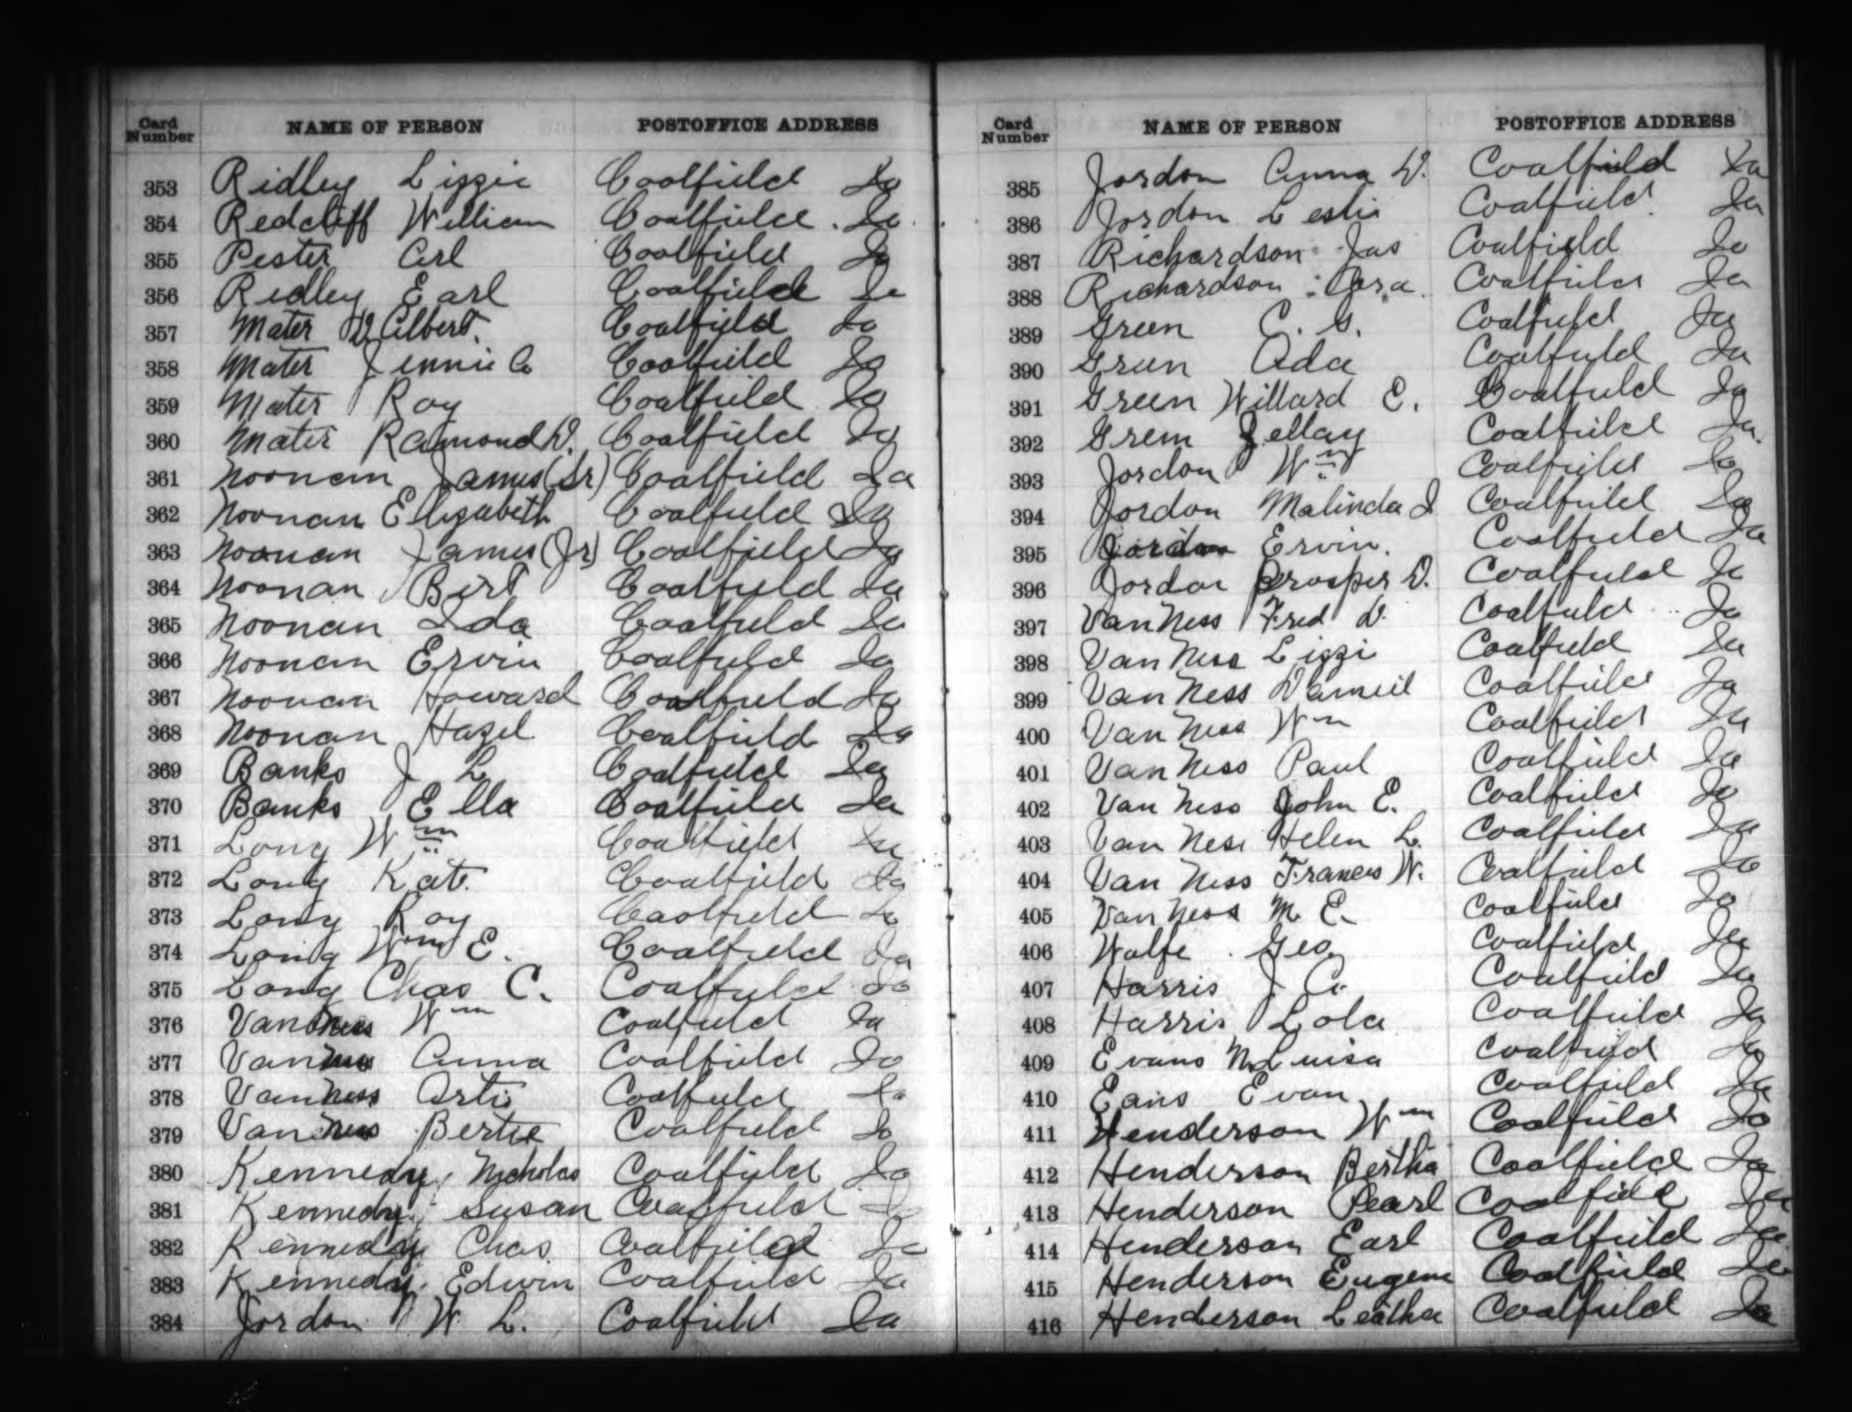 Card Number NAME OF PERSON POSTOFFICE ADDRESS
353 Ridley Lizzie Coalfield Ia
354 Redcliff William Coalfield Ia
355 Pester Carl Coalfield Ia
356 Ridley Earl Coalfield Ia
357 Mater D Albert. Coalfield Ia
358 Mater Jennie C Coalfield Ia
359 Mater Roy Coalfield Ia
360 Mater Ramond D. Coalfield Ia
361 Noonan James (Sr) Coalfield Ia
362 Noonan Elizabeth Coalfield Ia
363 Noonan James (Jr) Coalfield Ia
364 Noonan Bert Coalfield Ia
365 Noonan Ida Coalfield Ia
366 Noonan Ervin Coalfield Ia
367 Noonan Howard Coalfield Ia
368 Noonan Hazel Coalfield Ia
369 Banks J L Coalfield Ia
370 Banks Ella Coalfield Ia
371 Long Wm Coalfield Ia
372 Long Kate Coalfield Ia
373 Long Roy Coalfield Ia
374 Long Wm E. Coalfield Ia
375 Long Chas C. Coalfield Ia
376 Van Ness Wm Coalfield Ia
377 Van Ness Anna Coalfield Ia
378 Van Ness Artie Coalfield Ia
379 Van Ness Bertie Coalfield Ia
380 Kennedy Nicholas Coalfield Ia
381 Kennedy Susan Coalfield Ia
382 Kennedy Chas Coalfield Ia
383 Kennedy Edwin Coalfield Ia
384 Jordon W. L. Coalfield Ia
Card Number NAME OF PERSON POSTOFFICE ADDRESS
385 Jordon Anna D. Coalfield Ia
386 Jordon Leslie Coalfield Ia
387 Richardson Jas Coalfield Ia
388 Richardson Ora Coalfield Ia
389 Green C. G. Coalfield Ia
390 Green Ada Coalfield Ia
391 Green Willard E. Coalfield Ia
392 Green Coalfield Ia.
393 Jordon Wm Coalfield Ia
394 Jordon Malinda J Coalfield Ia
395 Jordon Ervin. Coalfield Ia
396 Jordon Prosper D. Coalfield Ia
397 Van Ness Fred D. Coalfield Ia
398 Van Ness Lizzi Coalfield Ia
399 Van Ness Daniel Coalfield Ia
400 Van Ness Wm Coalfield Ia
401 Van Ness Paul Coalfield Ia
402 Van Ness John E. Coalfield Ia
403 Van Ness Helen L. Coalfield Ia
404 Van Ness Frances W. Coalfield Ia
405 Van Ness M. E. Coalfield Ia
406 Wolfe Geo. Coalfield Ia
407 Harris J C. Coalfield Ia
408 Harris Lola Coalfield Ia
409 Evans M. Luisa Coalfield Ia
410 Eans Evan Coalfield Ia
411 Henderson Wm Coalfield Ia
412 Henderson Bertha Coalfield Ia
413 Henderson Pearl Coalfield Ia
414 Henderson Earl Coalfield Ia
415 Henderson Eugene Coalfield Ia
416 Henderson Leatha Coalfield Ia